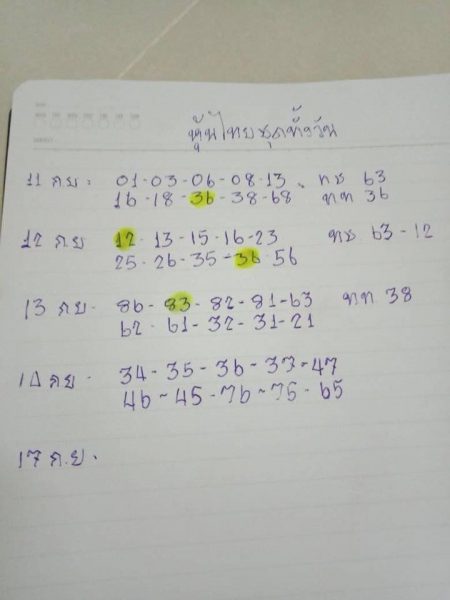 หุ้นไทยชุดทั้งวัน
11 กย. 01-03-06-08-13. ทช 63
16-18-36-38-68 ทท 36
12 กย 12-13-15-16-23 ทช 63-12
25-26-35-36-56
13 กย. 86-83-82-81-63 ทท 38
62-61-32-31-21
14 กย. 34-35-36-37-47
46-45-76-75-65
17 ก.ย.